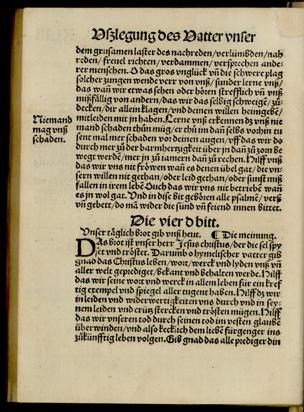 Vßlegung des Vatter vnser
dem grusamen laster des nachreden/verlümbden/nah
reden/freuel richten/verdammen/versprechen ande-
rer menschen. O das gros vnglück vñ die schwere plag
solcher zungen wende verr von vnß/sunder lerne vnß/
das wañ wir etwas sehen oder hören strefflich vñ vnß
mißfällig von andern/das wir das selbig schweige/zů-
decken/dir allein klagen/vnd deinen willen heimgebē/
Niemand
mag vnß
schaden.
mitleiden mit jn haben. Lerne vnß erkennen dz vnß nie
mand schaden thůn müg/er thü im dañ selbs vorhin tu
sent mal mer schaden vor deinen augen/vff das wir do
durch mer zů der barmhertzigkeit über jn dañ zů zorn be
wegt werdē/mer jn zů iamern dañ zů rechen. Hilff vnß
das wir vns nit fröwen wañ es denen übel gat/die vn-
sern willen nit gethan/oder leid gethan/oder sunst miß
fallen in irem lebē. Ouch das wir vns nit betriebē wañ
es jn wol gat. Vnd in dise bit gehören alle psalmē/verß
vñ gebett/do mā wider die sünd vñ feiend innen bittet.
Die vierd bitt.
Vnser täglich brot gib vnß heut. ¶ Die meinung.
DAs brot ist vnser herr Jesus christus/der die sel spy
set vnd tröstet. Darumb o hymelischer vatter gib
gnad das Christus leben/wort/werck vnd lyden vnß vñ
aller welt geprediget/bekant vnd behalten werde. Hilff
das wir seine wort vnd werck in allem leben für ein kref
tig exempel vnd spiegel aller tugent haben. Hilff dz wir
in leiden vnd widerwertigkeiten vns durch vnd in sey-
nem leiden vnd crütz stercken vnd trösten mügen. Hilff
das wir vnseren tod durch seinen tod in vestem glaube
überwinden/vnd also kecklich dem liebē fürgenger ins
zůkünfftig leben volgen. Gib gnad das alle prediger din